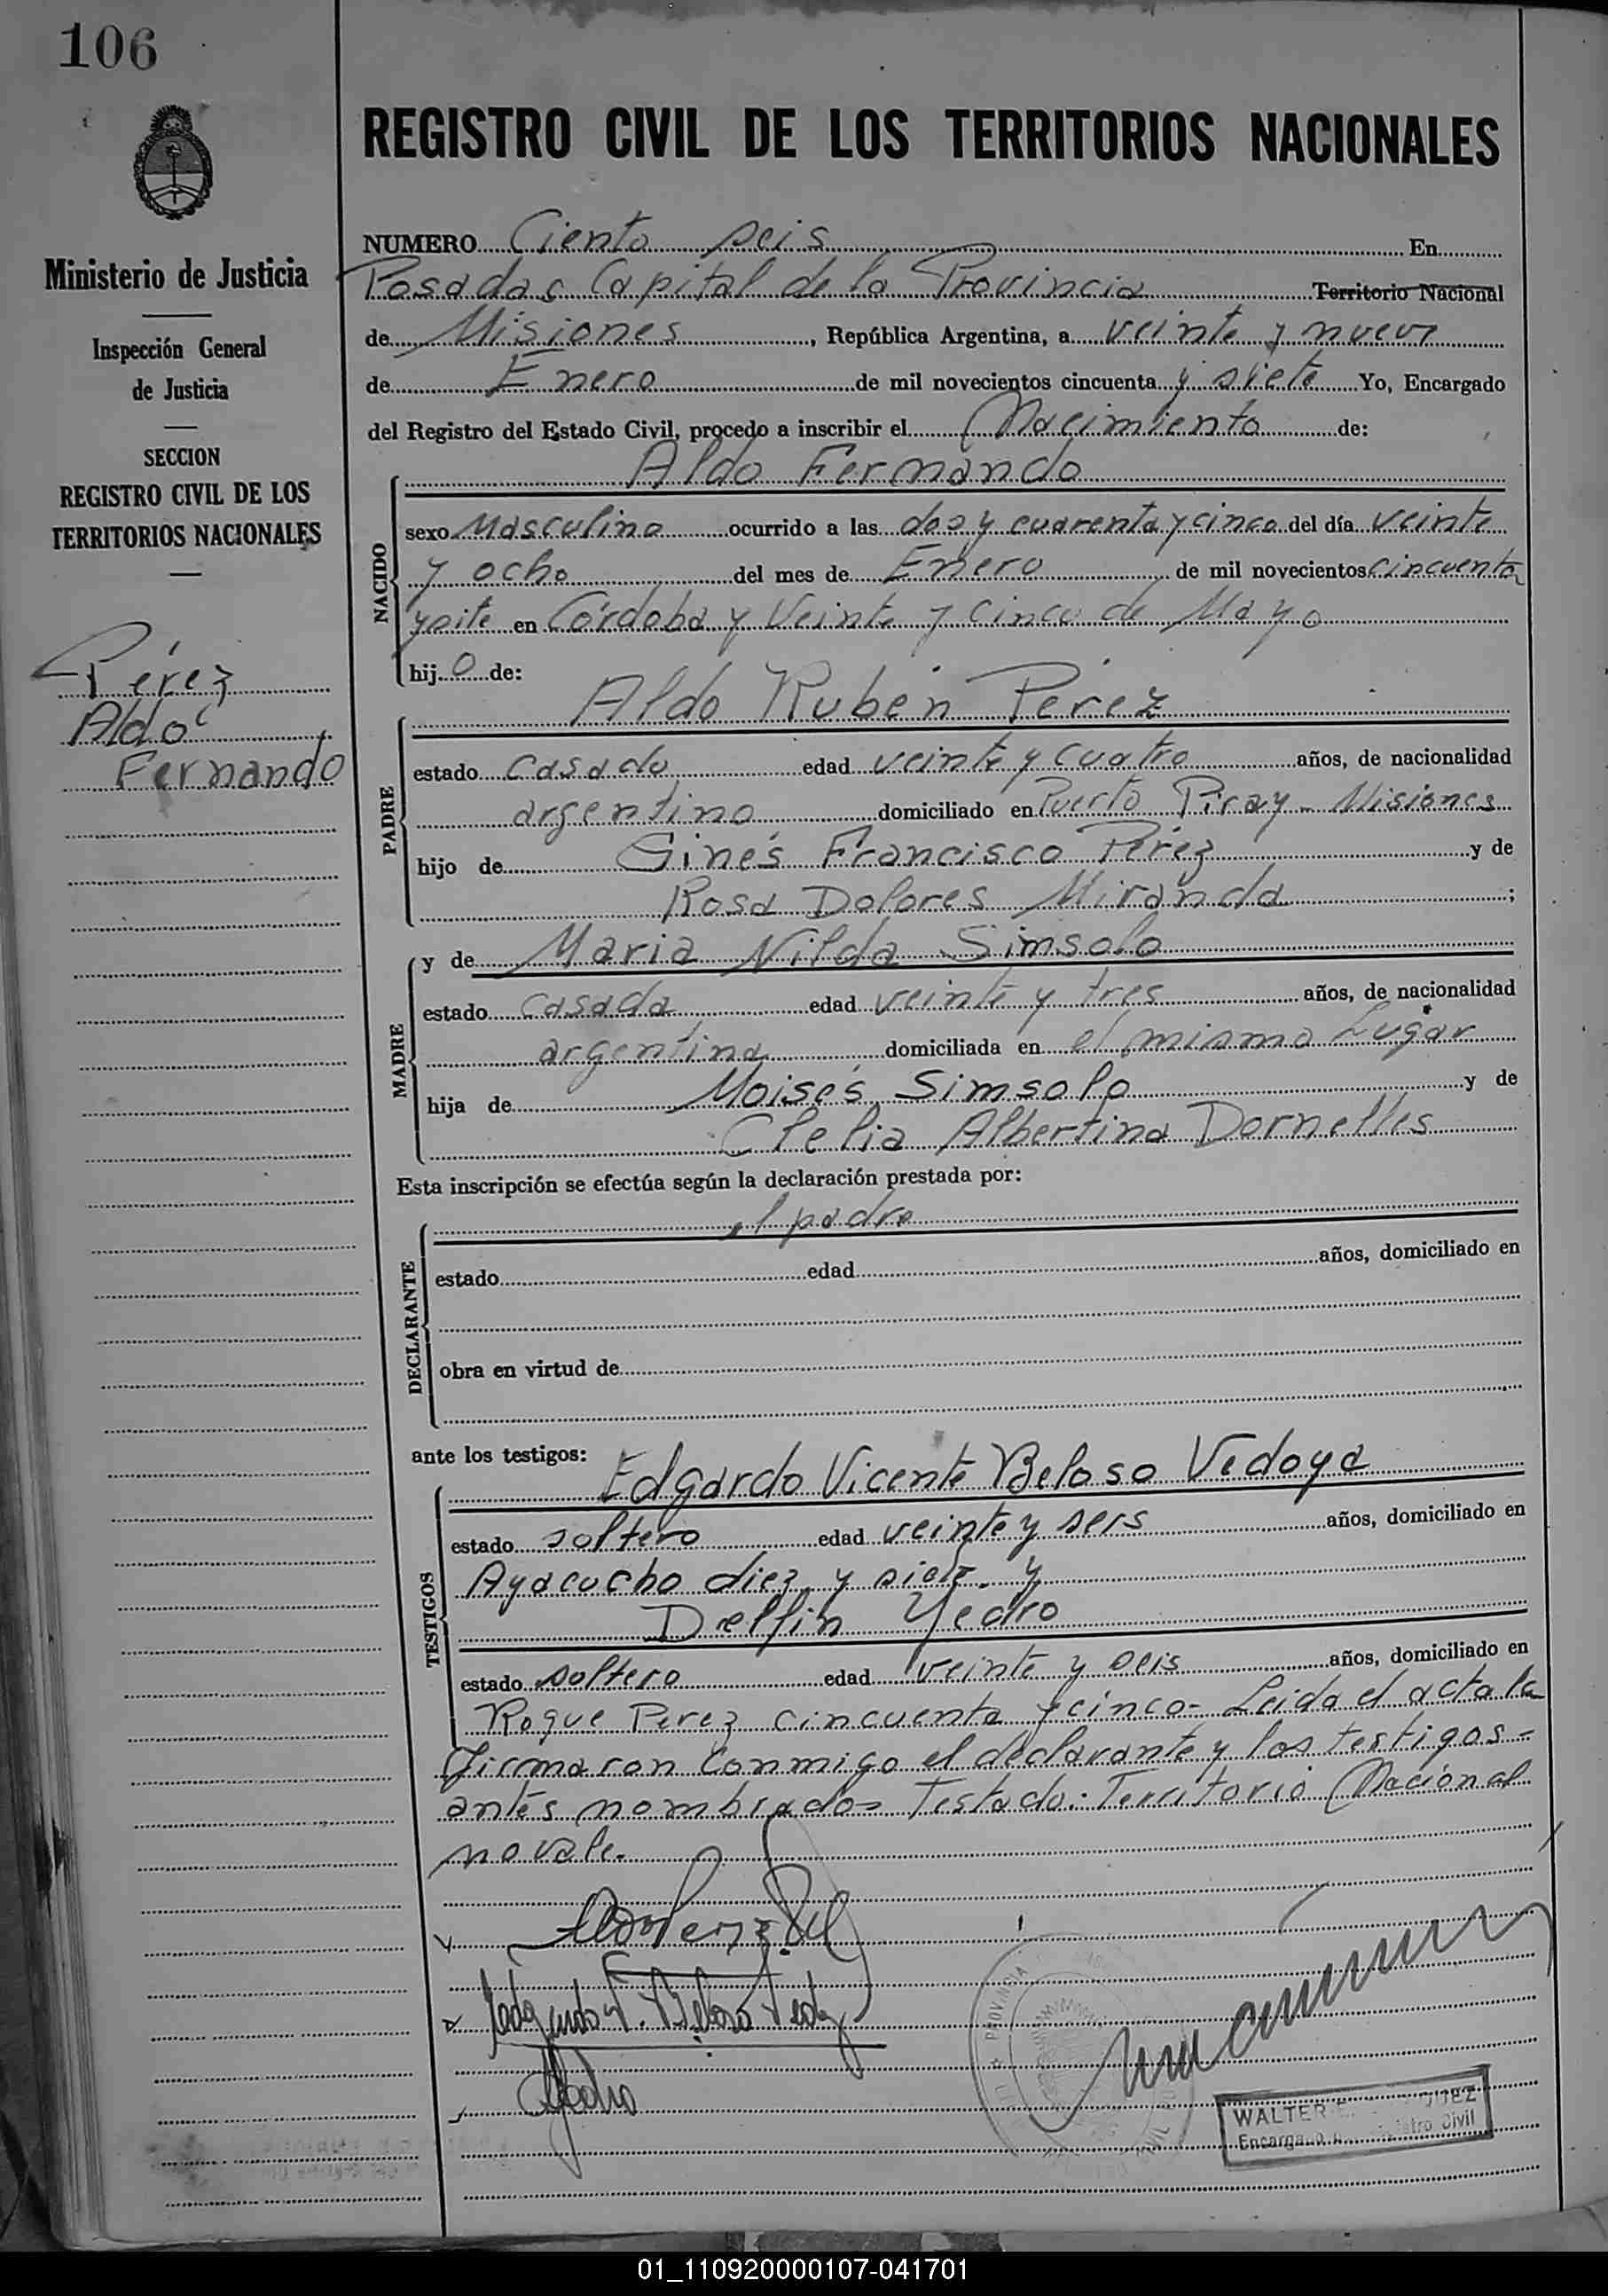 106
REGISTRO CIVIL DE LOS TERRITORIOS NACIONALES
Ministerio de Justicia
Inspección General
de Justicia
SECCION
REGISTRO CIVIL DE LOS
TERRITORIOS NACIONALES
Pérez
Aldo
Fernando
NUMERO Ciento seis En
Posadas Capital de la Provincia Territorio Nacional
de Misiones, República Argentina, a veinte y nueve
de Enero de mil novecientos cincuenta y siete Yo, Encargado
del Registro del Estado Civil, procedo a inscribir el Nacimiento de:
Aldo Fernando
NACIDO
sexo Masculino ocurrido a las dos y cuarenta y cinco del día veinte
y ocho del mes de Enero de mil novecientos cincuenta
en Córdoba y Veinte y Cinco de Mayo
hijo de:
Aldo Rubén Pérez
PADRE
estado casado edad veinte y cuatro años, de nacionalidad
argentino domiciliado en Puerto Piray - Misiones
hijo de Ginés Francisco Pérez y de
Rosa Dolores Miranda ;
MADRE
y de Maria Nilda Simsolo
estado casada edad veinte y tres años, de nacionalidad
argentina domiciliada en el mismo Lugar
hija de Moisés Simsolo y de
Clelia Albertina Dornelles
Esta inscripción se efectúa según la declaración prestada por:
el padre
DECLARANTE
estado edad años, domiciliado en
obra en virtud de
ante los testigos:
Edgardo Vicente Beloso Vedoya
TESTIGOS
estado soltero edad veinte y seis años, domiciliado en
Ayacucho diez y siete y
Delfin Yedro
estado soltero edad veinte y seis años, domiciliado en
Roque Perez cincuenta y cinco- Leida el acta la
firmaron conmigo el declarante y los testigos-
antes nombrados- Testado: Territorio Nacional
no vale.
PROVINCIA
WALTER
Encargado
Civil
01_110920000107-041701